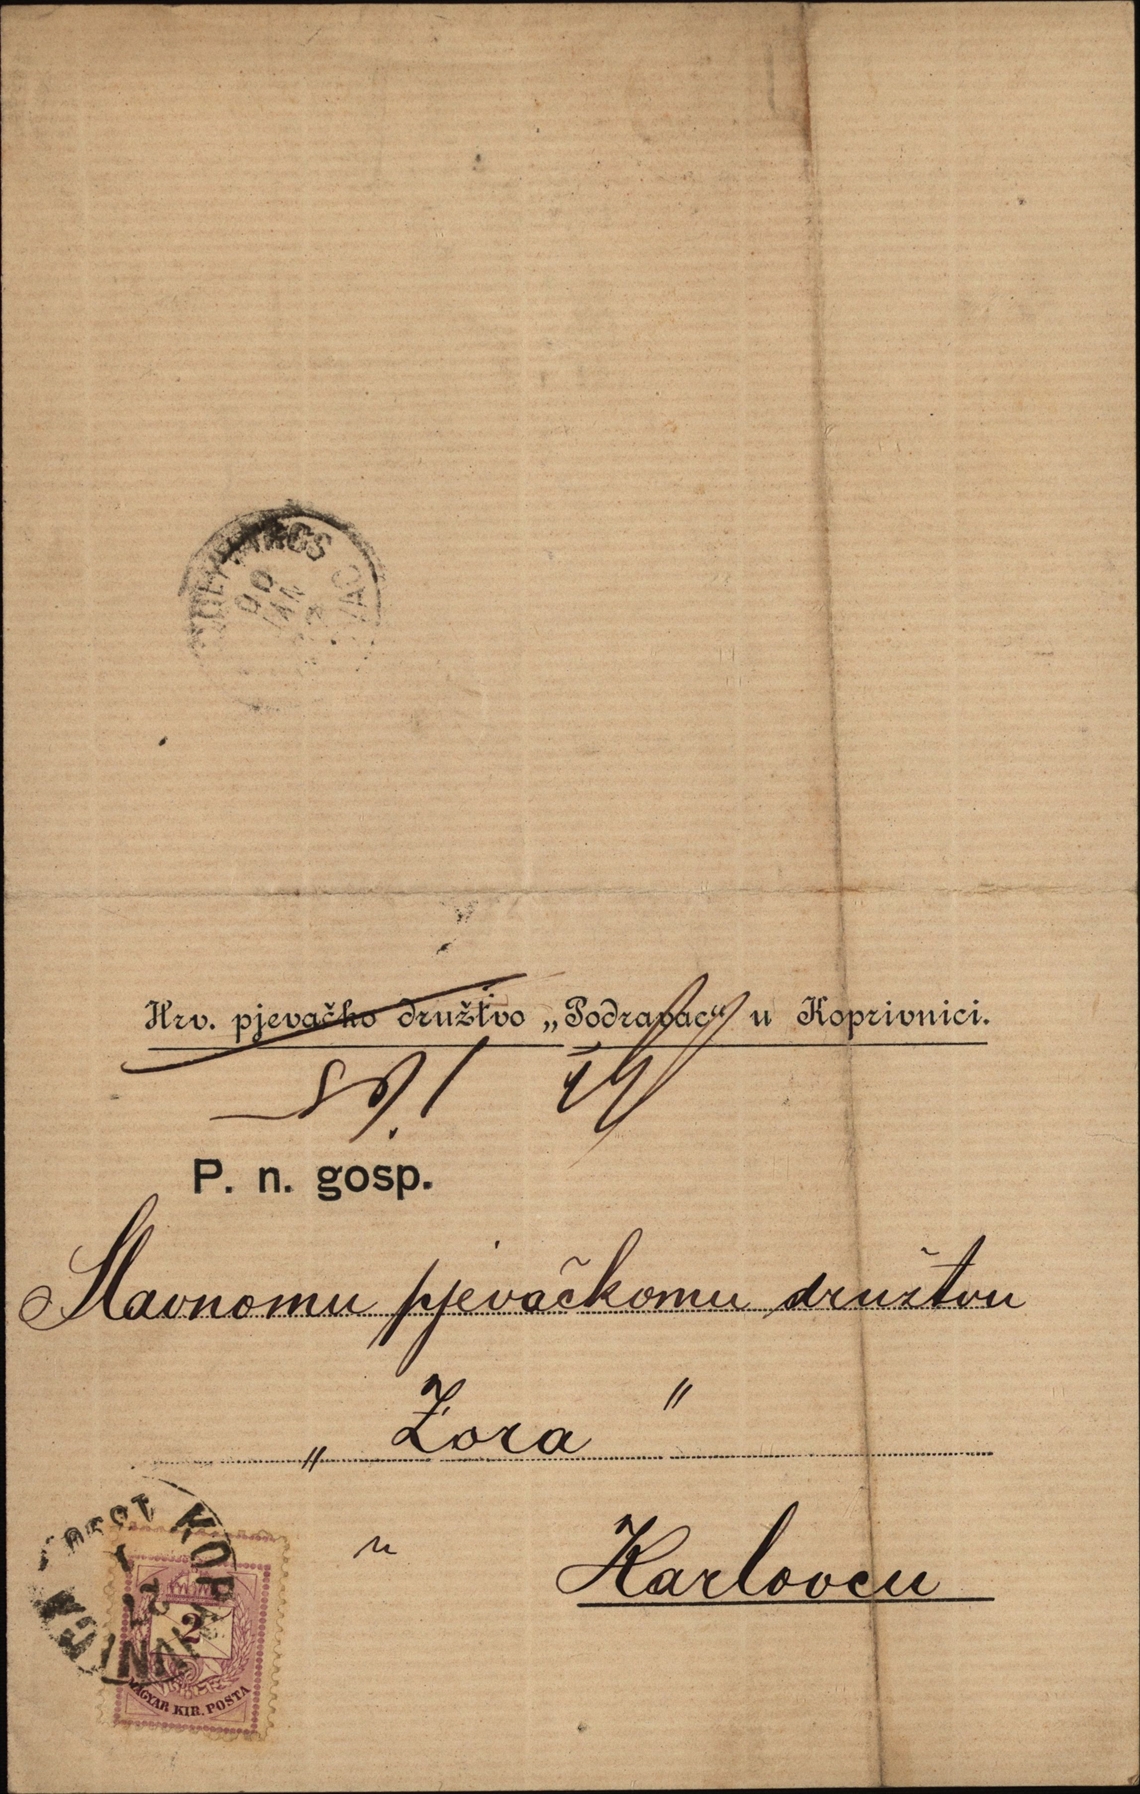 90
JAN
Hrv. pjevačko družtvo „Podravac“ u Koprivnici.
P. n. gosp.
Slavnomu pjevačkomu družtvu
„Zora“
u Karlovcu
KOPRIVNICA
2
MAGYAR KIR. POSTA